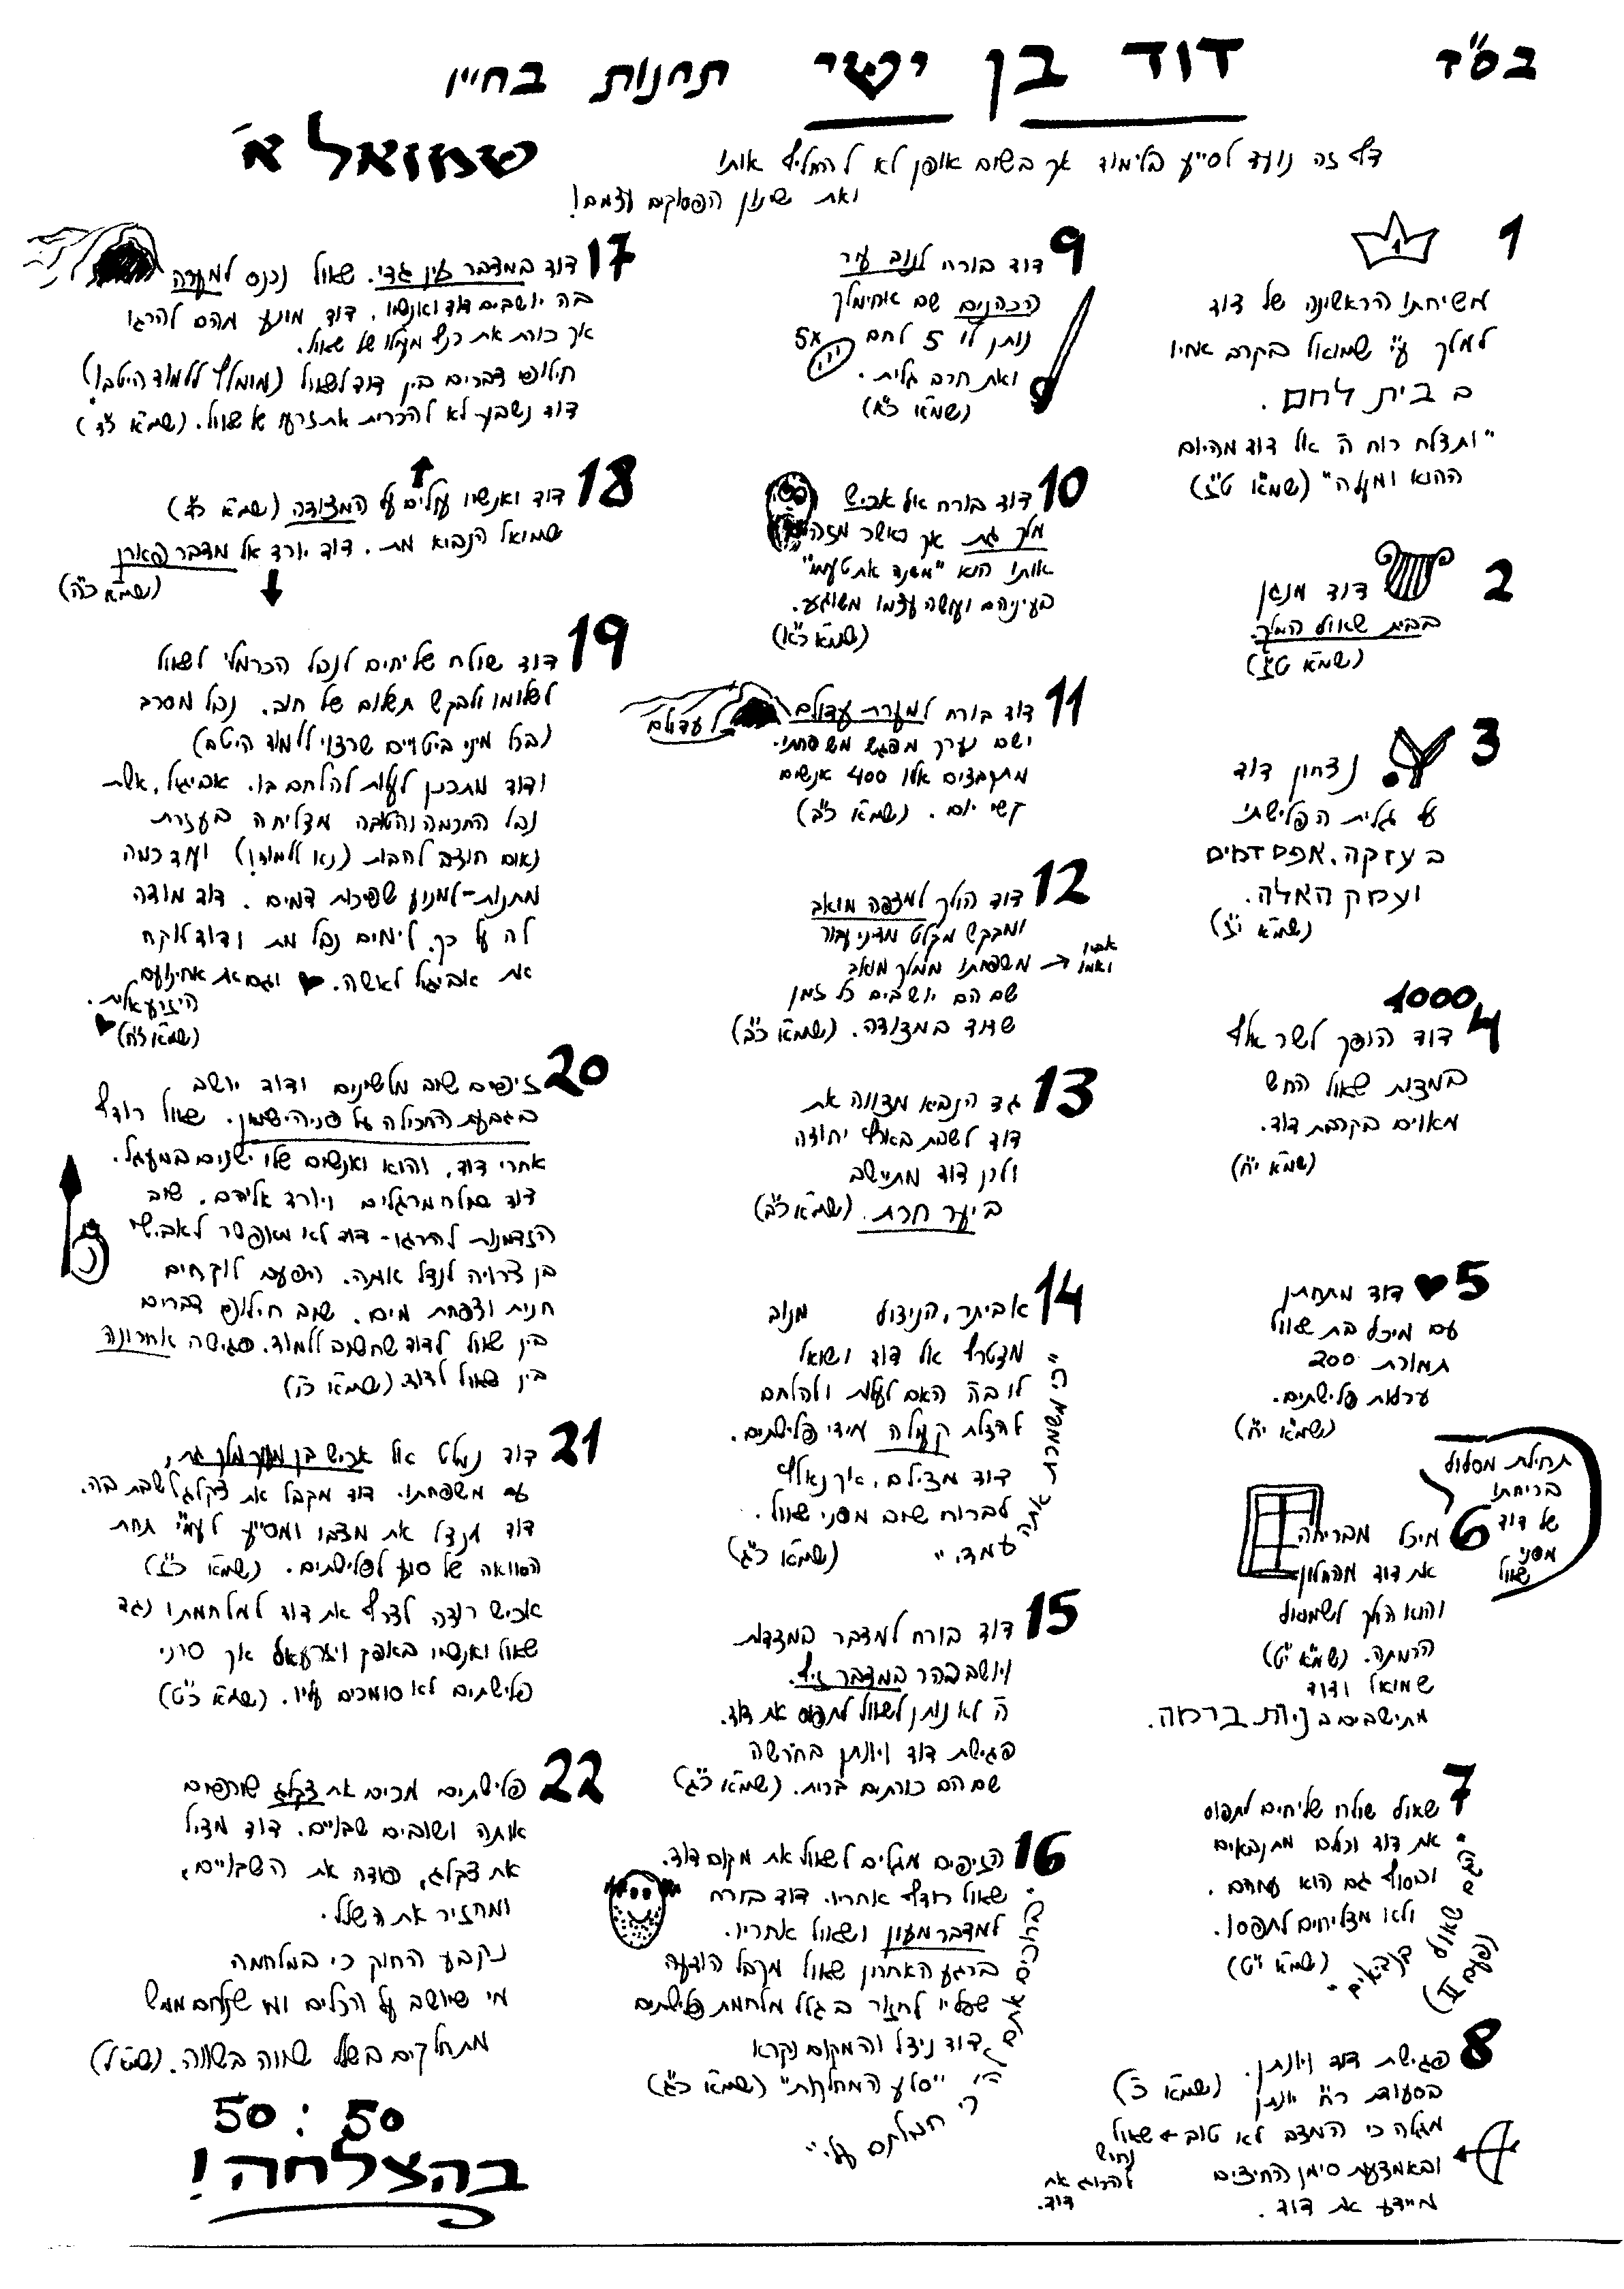 בס"ד
דוד בן ישי תחנות בחייו
שמואל א'
דף זה נועד לסייע בלימוד אך בשום אופן לא להחליף אותו
ואת שינון הפסוקים עצמם!
1
1
משיחתו הראשונה של דוד
למלך ע"י שמואל בקרב אחיו
בבית לחם.
"ותצלח רוח ה' אל דוד מהיום
ההוא ומעלה" (שמ"א ט"ז)
2
דוד מנגן
בבית שאול המלך.
(שמ"א ט"ז)
3
נצחון דוד
על גלית הפלישתי
בעזקה, אפס דמים
ועמק האלה.
(שמ"א י"ז)
1000
4 דוד הופך לשר אלף
במצוות שאול החש
מאוים בקרבת דוד.
(שמ"א י"ח)
5 דוד מתחתן
עם מיכל בת שאול
תמורת 200
ערלות פלישתים.
(שמ"א י"ח)
תחילת מסלול
בריחתו
של דוד
מפני
שאול
6 מיכל מבריחה
את דוד מהחלון
והוא הולך לשמואל
הרמתה. (שמ"א י"ט)
שמואל ודוד
מתישבים בניות ברמה.
7
שאול שולח שליחים לתפוס
את דוד וכולם מתנבאים
ובסוף גם הוא עמהם.
ולא מצליחים לתפסו.
(שמ"א י"ט)
"הגם שאול בנביאים"
(פעם II)
8
פגישת דוד ויונתן.
(שמ"א כ')
בסעודת ר"ח יונתן
מגלה כי המצב לא טוב ← שאול
נחוש
להרוג את
דוד.
ובאמצעות סימן החיצים
מיידע את דוד.
9
דוד בורח לנוב עיר
הכהנים שם אחימלך
נותן לו 5 לחם 5x
ואת חרב גלית.
(שמ"א כ"א)
10
דוד בורח אל אכיש
מלך גת אך כאשר מזהים
אותו הוא "משנה את טעמו"
בעיניהם ועושה עצמו משוגע.
(שמ"א כ"א)
11
דוד בורח למערת עדולם
לעדולם
ושם נערך מפגש משפחתי.
מתקבצים אליו 400 אנשים
קשי יום. (שמ"א כ"ב)
12
דוד הולך למצפה מואב
ומבקש מקלט מדיני עבור
משפחתו ממלך מואב
→ אביו
ואמו
שם הם יושבים כל זמן
שדוד במצודה. (שמ"א כ"ב)
13
גד הנביא מצווה את
דוד לשבת בארץ יהודה
ולכן דוד מתיישב
ביער חרת. (שמ"א כ"ב)
14
אביתר, הניצול מנוב
מצטרף אל דוד ושואל
לו בה' האם לעלות ולהלחם
להצלת קעילה מידי פלישתים.
דוד מצילם, אך נאלץ
לברוח שוב מפני שאול.
(שמ"א כ"ג)
"כי משמרת אתה עמדי"
15
דוד בורח למדבר במצדות
ויושב בהר במדבר זיף.
ה' לא נותן לשאול לתפוס את דוד.
פגישת דוד ויונתן בחרשה
שם הם כורתים ברית. (שמ"א כ"ג)
16
הזיפים מגלים לשאול את מקום דוד.
שאול רודף אחריו. דוד בורח
למדבר מעון ושאול אחריו.
ברגע האחרון שאול מקבל הודעה
שעליו לחזור בגלל מלחמת פלישתים
דוד ניצל והמקום נקרא
"סלע המחלקות" (שמ"א כ"ג)
"ברוכים אתם לה' כי חמלתם עלי"
17
דוד במדבר עין גדי. שאול נכנס למערה
בה יושבים דוד ואנשיו. דוד מונע מהם להרגו
אך כורת את כנף מעילו של שאול.
חילופי דברים בין דוד לשאול (מומלץ ללמוד היטב!)
דוד נשבע לא להכרית את זרעו של שאול. (שמ"א כ"ד)
18
דוד ואנשיו עולים על המצודה (שמ"א כ"ד)
שמואל הנביא מת. דוד יורד אל מדבר פארן
(שמ"א כ"ה)
19
דוד שולח שליחים לנבל הכרמלי לשאול
לשלומו ולבקש תשלום של חוב. נבל מסרב
(בכל מיני ביטויים שרצוי ללמוד היטב)
ודוד מתכנן לעלות להלחם בו. אביגיל, אשת
נבל החכמה והטובה מצליחה בעזרת
נאום חוצב להבות (נא ללמוד!) ועוד כמה
מתנות - למנוע שפיכות דמים. דוד מודה
לה על כך. לימים נבל מת ודוד לוקח
את אביגיל לאשה. וגם את אחינועם
היזרעאלית.
(שמ"א כ"ה)
20
זיפים שוב מלשינים ודוד יושב
בגבעת החכילה על פני הישימון. שאול רודף
אחרי דוד, והוא ואנשים שלו ישנים במעגל.
דוד שולח מרגלים ויורד אליהם. שוב
הזדמנות להרגו - דוד לא מאפשר לאבישי
בן צרויה לנצל אותה. הפעם לוקחים
חנית וצפחת מים. שוב חילופי דברים
בין שאול לדוד שחשוב ללמוד. פגישה אחרונה
בין שאול לדוד (שמ"א כ"ו)
21
דוד נמלט אל אכיש בן מעוך מלך גת,
עם משפחתו. דוד מקבל את צקלג לשבת בה.
דוד מנצל את מצבו ומסייע לעמ"י תחת
הסוואה של סיוע לפלישתים. (שמ"א כ"ז)
אכיש רוצה לצרף את דוד למלחמתו נגד
שאול ואנשיו באפק ויזרעאל אך סרני
פלישתים לא סומכים עליו. (שמ"א כ"ט)
22
פלישתים מכים את צקלג שורפים
אותה ושובים שבויים. דוד מציל
את צקלג, פודה את השבויים,
ומחזיר את השלל.
נקבע החוק כי במלחמה
מי שיושב על הכלים ומי שנלחם ממש
מתחלקים בשלל שווה בשווה. (שמ"א ל')
50 : 50
בהצלחה!